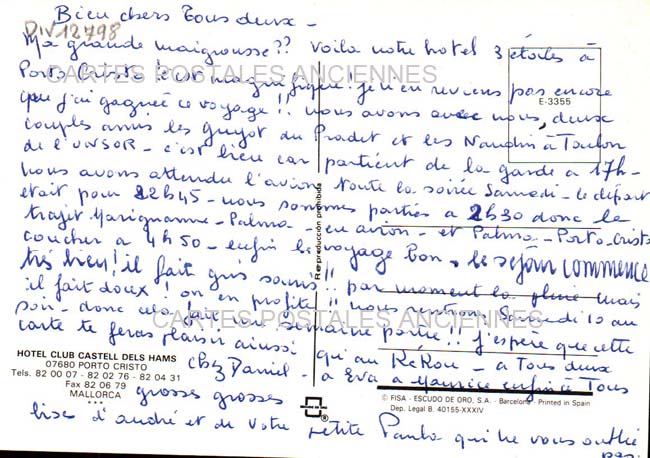 Bien chers Tous deux -
DIV12798
Ma grande maigrousse?? Voila notre hotel 3 étoiles à
Porto Cristo magnifique. je n'en reviens pas encore
que j'ai gagnée ce voyage!! nous avons avec nous, deux
couples amis les Guyot du Pradet et les Naudin à Toulon
de l'UNSOR - c'est bien car partient de la garde a 17h -
nous avons attendu l'avion toute la soirée Samedi - le départ
etait pour 22h45 - nous sommes partis a 2h30 donc le
trajet Marignanne - Palma - en avion - et Palma - Porto-Cristo
coucher a 4h50 - enfin le voyage bon. le séjour commence
très bien! il fait gris souris!! par moment la pluie mais
il fait doux! on en profite!! nous rentrons Samedi 10 au
soir - donc cela fait une Semaine porte!! J'espère que cette
carte te feras plaisir ainsi qu'au KeKou - a Tous deux
chez Daniel - a Eva a Maurice enfin à Tous
grosses grosses
bises d'andré et de Votre petite Paula qui ne vous oublie
pas.
CARTES POSTALES ANCIENNES
CARTES POSTALES ANCIENNES
E-3355
Reproducción prohibida
HOTEL CLUB CASTELL DELS HAMS
07680 PORTO CRISTO
Tels. 82 00 07 - 82 02 76 - 82 04 31
Fax 82 06 79
MALLORCA
***
© FISA - ESCUDO DE ORO, S.A. - Barcelona - Printed in Spain
Dep. Legal B. 40155-XXXIV